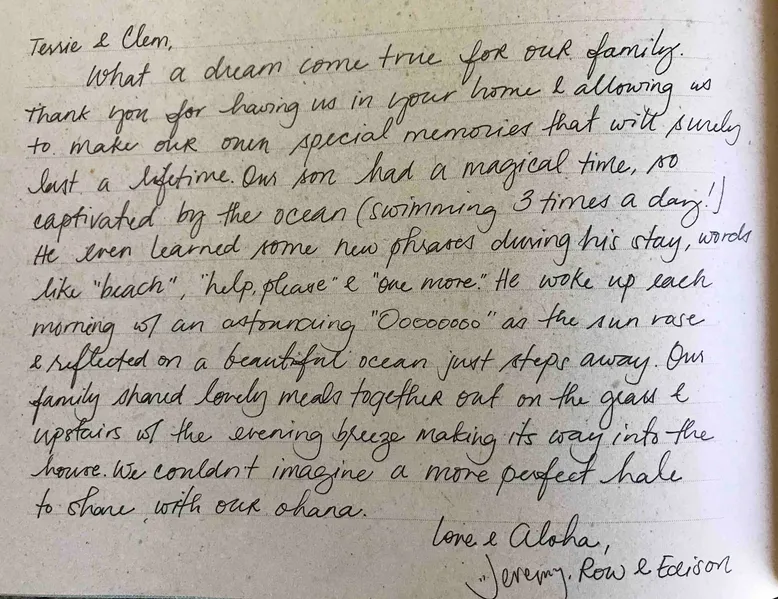 Tessie & Clem,
What a dream come true for our family.
Thank you for having us in your home & allowing us
to make our own special memories that will surely
last a lifetime. Our son had a magical time, so
captivated by the ocean (swimming 3 times a day!)
He even learned some new phrases during his stay, words
like "beach", "help, please" & "one more." He woke up each
morning w/ an astounding "Oooooooo" as the sun rose
& reflected on a beautiful ocean just steps away. Our
family shared lovely meals together out on the grass &
upstairs w/ the evening breeze making its way into the
house. We couldn't imagine a more perfect hale
to share with our ohana.
Love & Aloha,
Jeremy, Row & Edison